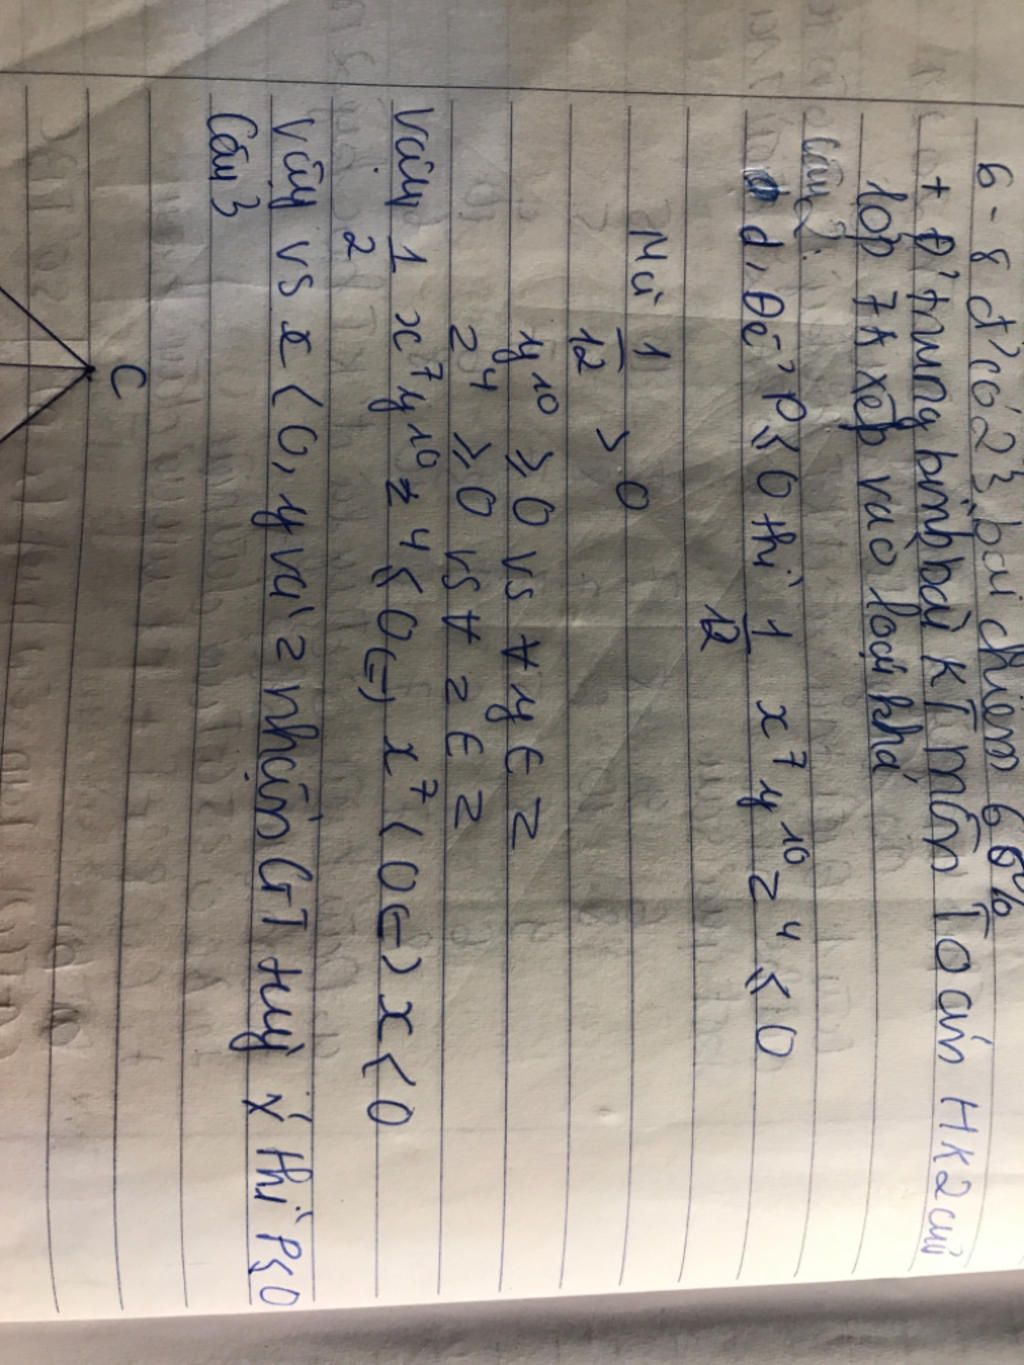 6 - 8 đ' có 23 bài chiếm 60%
+ Đ' trung bình bài KT môn Toán HK2 của
lớp 7A xếp vào loại khá
Câu 2:
d, Để P ≤ 0 thì 1/12 x⁷y¹⁰z⁴ ≤ 0
Mà 1/12 > 0
y¹⁰ ≥ 0 vs ∀ y ∈ Z
z⁴ ≥ 0 vs ∀ z ∈ Z
Vậy 1/2 x⁷y¹⁰z4 ≤ 0 (=) x⁷ < 0 (=) x < 0
Vậy vs x < 0, y và z nhận GT tuỳ ý thì P ≤ 0
Câu 3
C